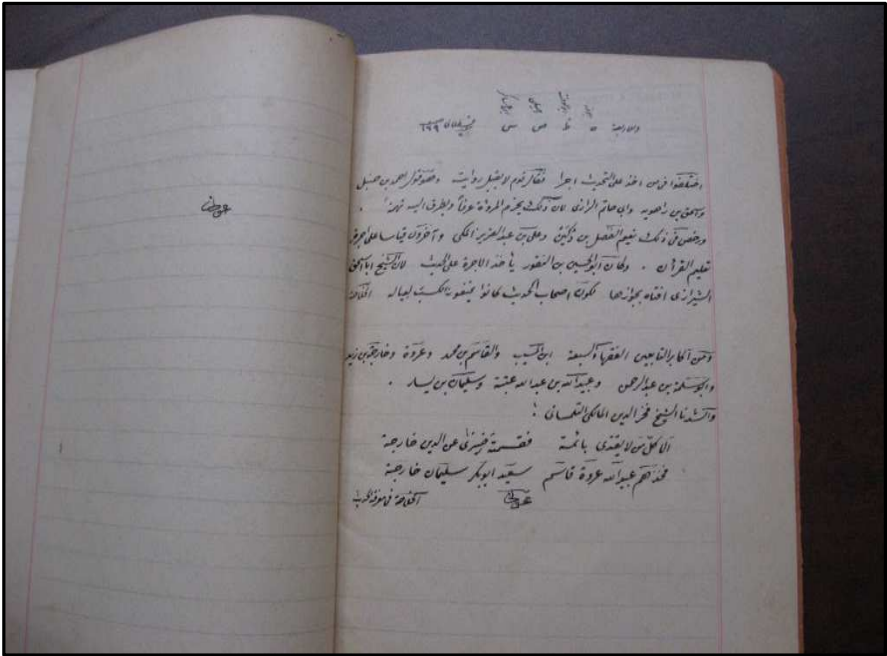 والاربعة ه ط ص س
اختلفوا فى من اخذ على التحديث اجرا فقال قوم لا يقبل روايته وهو قول احمد بن حنبل
واسحق بن راهويه وابى حاتم الرازى لان ذلك يخرم المروئة عرفاً ويطرق اليه تهمة .
ورخص فى ذلك نعيم الفضل بن دكين وعلى بن عبد العزيز المكى وآخرون قياسا على اجرة
تعليم القرآن . وكان ابو الحسين بن النقور يأخذ الاجرة على الحديث لان الشيخ ابا اسحق
الشيرازى افتاه بجوازها لكون اصحاب الحديث كانوا يمنعونه الكسب لعياله الخلاصة
ومن اكابر التابعين الفقهاء السبعة ابن المسيب والقاسم بن محمد وعروة وخارجة بن زيد
وابو سلمة بن عبد الرحمن وعبيد الله بن عبد الله عتبة وسليمان بن يسار .
وانشدنا الشيخ فخر الدين المالكى التلمسانى :
الا كل من لا يقتدى بائمة فقسمته ضيزى عن الدين خارجة
فخذهم عبيد الله عروة قاسم سعيد ابو بكر سليمان خارجة
الخلاصة فى معرفة الحديث